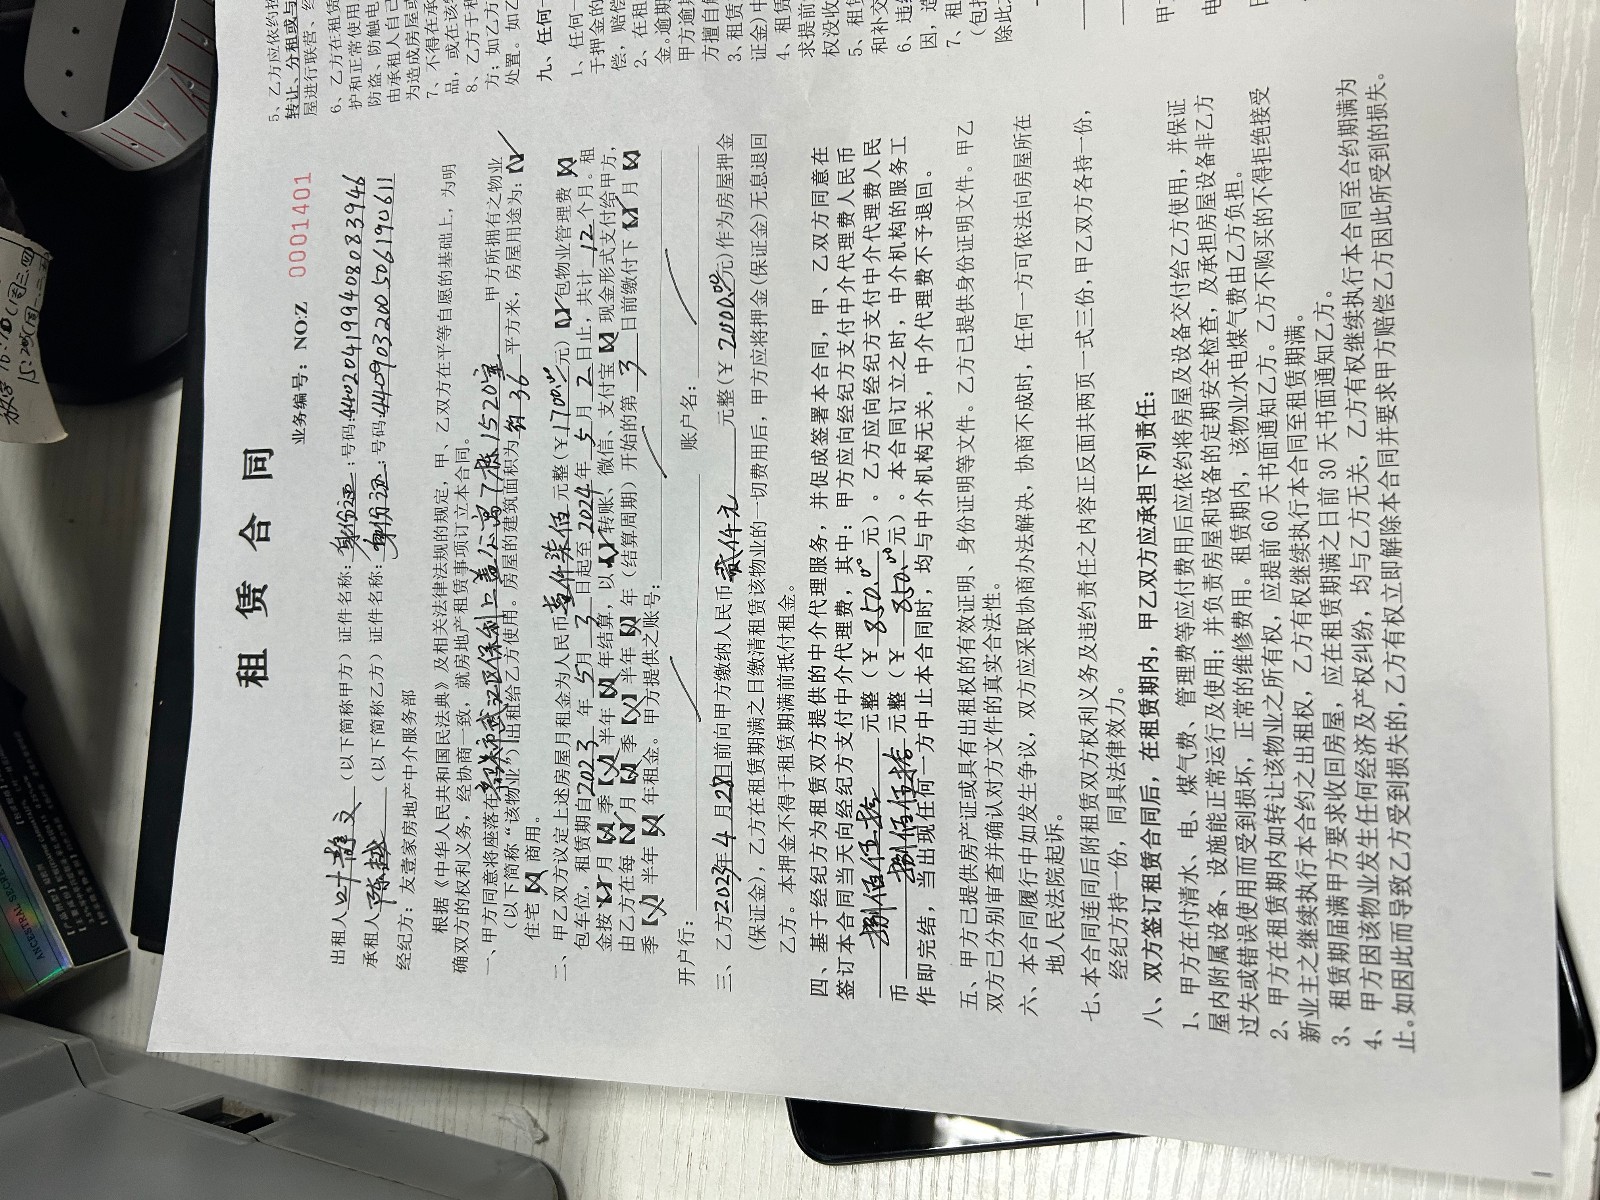 租 赁 合 同
业务编号：NO:Z 0001401
出租人叶静文（以下简称甲方）证件名称：身份证；号码：440204199408083946
承租人陈越（以下简称乙方）证件名称：身份证；号码：440903200506190611
经纪方：友壹家房地产中介服务部
根据《中华人民共和国民法典》及相关法律法规的规定，甲、乙双方在平等自愿的基础上，为明
确双方的权利义务，经协商一致，就房地产租赁事项订立本合同。
一、甲方同意将座落在 市 江区保利上盖公寓7栋1520室 甲方所拥有之物业
（以下简称“该物业”）出租给乙方使用。房屋的建筑面积为约36平方米，房屋用途为：【✓】
住宅【×】商用。
二、甲乙双方议定上述房屋月租金为人民币壹仟柒佰元整（￥1700.00元）【✓】包物业管理费【×】
包车位，租赁期自2023年5月3日起至2024年5月2日止，共计12个月。租
金按【✓】月【×】季【×】半年【×】年结算，以【✓】转账、微信、支付宝【×】现金形式支付给甲方，
由乙方在每【✓】月【×】季【×】半年【×】年（结算周期）开始的第3日前缴付下【✓】月【×】
季【×】半年【×】年租金。甲方提供之账号：
开户行： 账户名：
三、乙方2023年4月28日前向甲方缴纳人民币贰仟元元整（￥2000.00元）作为房屋押金
（保证金），乙方在租赁期满之日缴清租赁该物业的一切费用后，甲方应将押金（保证金）无息退回
乙方。本押金不得于租赁期满前抵付租金。
四、基于经纪方为租赁双方提供的中介代理服务，并促成签署本合同，甲、乙双方同意在
签订本合同当天向经纪方支付中介代理费，其中：甲方应向经纪方支付中介代理费人民币
捌佰伍拾元整（￥850.00元）。乙方应向经纪方支付中介代理费人民
币捌佰伍拾元整（￥850.00元）。本合同订立之时，中介机构的服务工
作即完结，当出现任何一方中止本合同时，均与中介机构无关，中介代理费不予退回。
五、甲方已提供房产证或具有出租权的有效证明、身份证明等文件。乙方已提供身份证明文件。甲乙
双方已分别审查并确认对方文件的真实合法性。
六、本合同履行中如发生争议，双方应采取协商办法解决，协商不成时，任何一方可依法向房屋所在
地人民法院起诉。
七、本合同连同后附租赁双方权利义务及违约责任之内容正反面共两页一式三份，甲乙双方各持一份，
经纪方持一份，同具法律效力。
八、双方签订租赁合同后，在租赁期内，甲乙双方应承担下列责任：
1、甲方在付清水、电、煤气费、管理费等应付费用后应依约将房屋及设备交付给乙方使用，并保证
屋内附属设备、设施能正常运行及使用；并负责房屋和设备的定期安全检查，及承担房屋设备非乙方
过失或错误使用而受到损坏，正常的维修费用。租赁期内，该物业水电煤气费由乙方负担。
2、甲方在租赁期内如转让该物业之所有权，应提前60天书面通知乙方。乙方不购买的不得拒绝接受
新业主之继续执行本合约之出租权，乙方有权继续执行本合同至租赁期满。
3、租赁期届满甲方要求收回房屋，应在租赁期满之日前30天书面通知乙方。
4、甲方因该物业发生任何经济及产权纠纷，均与乙方无关，乙方有权继续执行本合同至合约期满为
止。如因此而导致乙方受到损失的，乙方有权立即解除本合同并要求甲方赔偿乙方因此所受到的损失。
5、乙方应依约按
转让、分租或与
屋进行联营、经
6、乙方在租赁
护和正常使用
防盗、防触电
由承租人自己
为造成房屋或
7、不得在承
品，或在该物
8、乙方于租
方；如乙方
处置。如乙
九、任何一
1、任何一
于押金的
偿，赔偿
2、在租
金。逾期
甲方逾期
方擅自解
3、租赁
证金）中
4、租赁
求提前
权没收
5、租赁
和补交
6、违约
因，造
7、租
（包括
除此
甲
电
ANCESTRAL SECRE